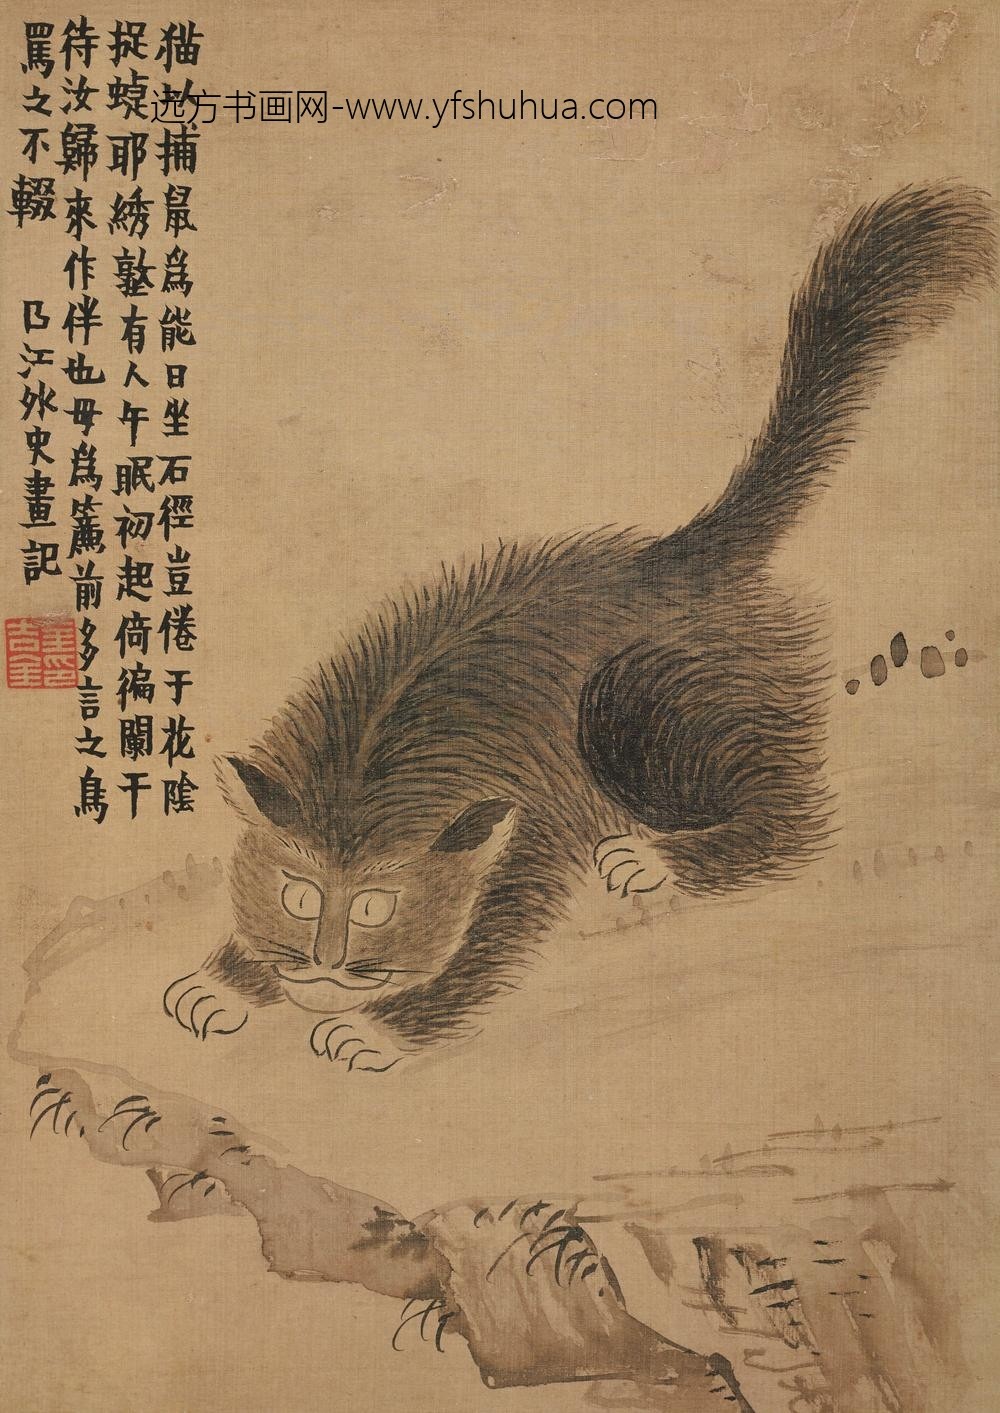 猫以捕鼠爲能日坐石徑豈倦于花陰
捉蜨耶綉墪有人午眠初起倚徧闌干
待汝歸來作伴也毋爲簾前多言之鳥
罵之不輟
曰江外史畫記
远方书画网-www.yfshuhua.com